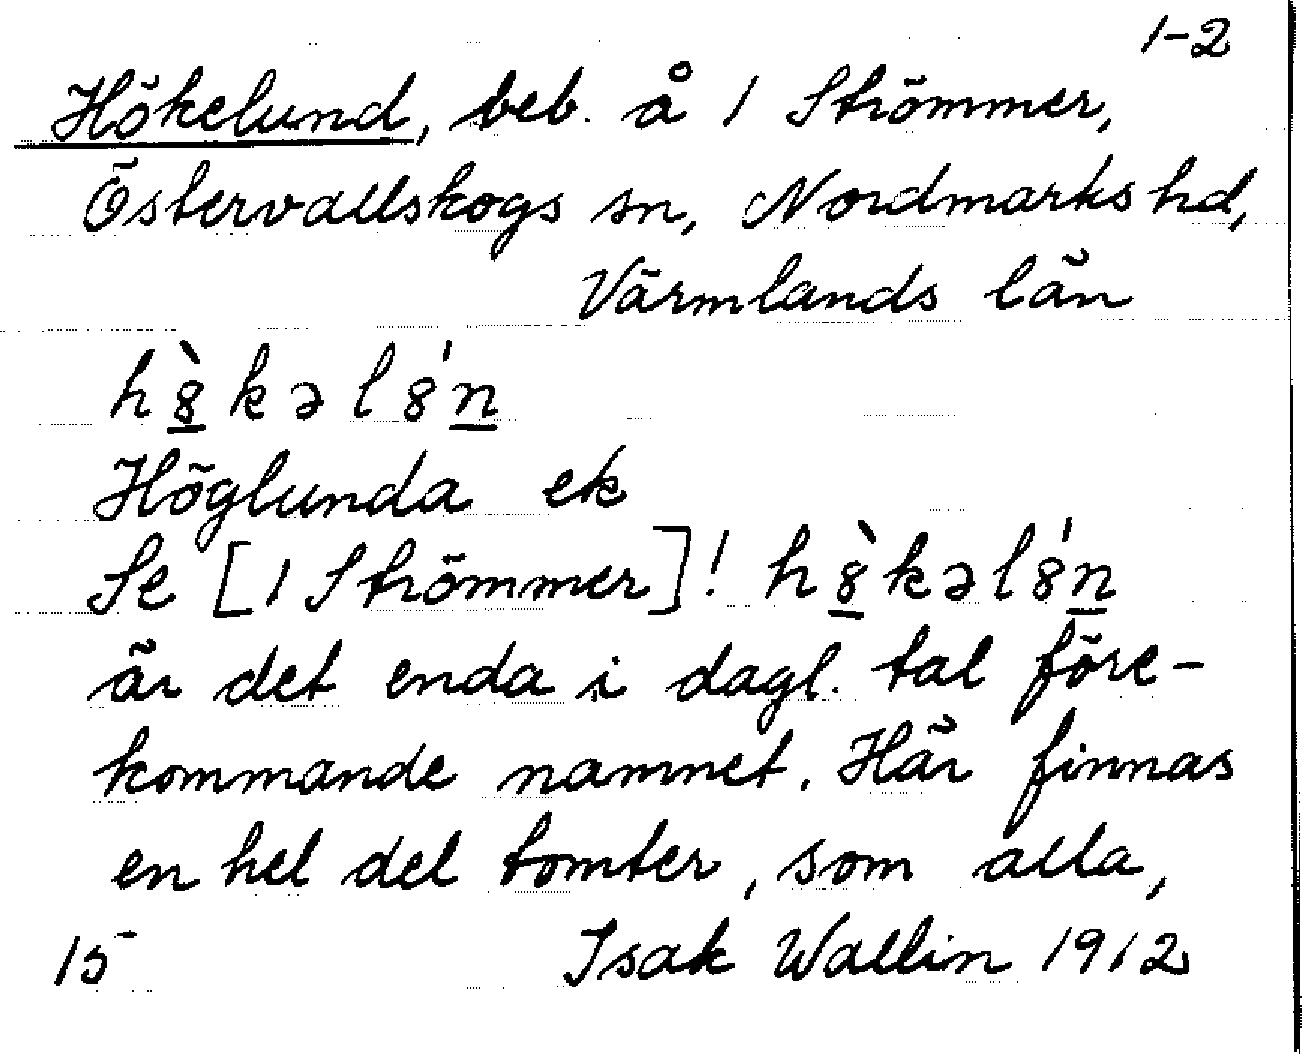 1-2
Hökelund, beb. å 1 Strömmer,
Östervallskogs sn, Nordmarks hd,
Värmlands län
h8̲̀kəl8́n̲
Höglunda ek
Se [1 Strömmer]! h8̲̀kəl8́n̲
är det enda i dagl. tal före-
kommande namnet. Här finnas
en hel del tomter, som alla,
15 Isak Wallin 1912